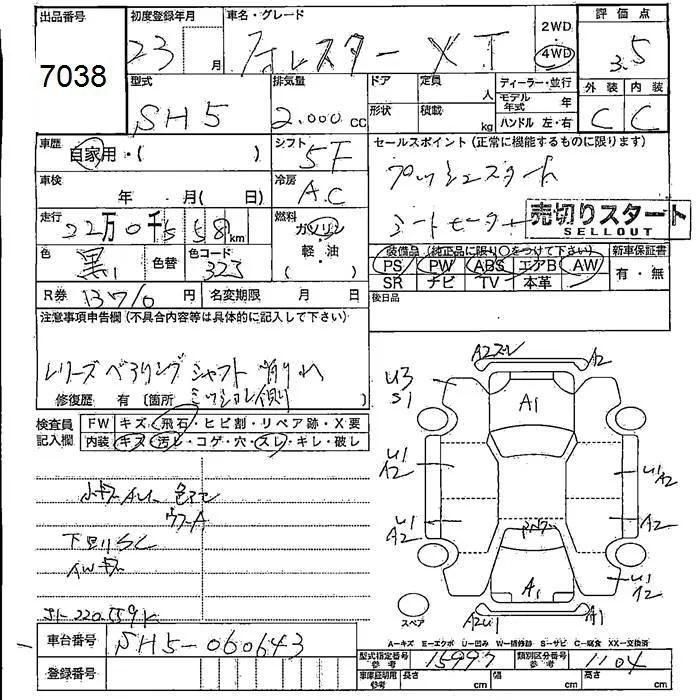 出品番号 初度登録年月 車名・グレード 2WD 評価点
7038 23 月 フォレスター XT 4WD 3.5
型式 排気量 ドア 定員 人 ディーラー・並行 外装 内装
SH5 2.000 cc 形状 積載 kg モデル年式 年 C C
ハンドル 左・右
車歴 自家用・( ) シフト 5F セールスポイント(正常に機能するものに限ります)
車検 年 月( 日) 冷房 A.C プッシュスタート
走行 22万0千 58 km 燃料 ガソリン 軽・油 ( ) シートヒーター 売切りスタート
SELLOUT
色 黒 色替 色コード 323 装備品(純正品に限り○をつけて下さい) 新車保証書
PS PW ABS エアB AW 有・無
SR ナビ TV 本革
R券 13710 円 名変期限 月 日 後日品
注意事項申告欄(不具合内容等は具体的に記入して下さい)
レリーズベアリングシャフト削れ
修復歴 有(箇所 ミッション側 )
検査員記入欄 FW キズ・飛石・ヒビ割・リペア跡・X要
内装 キズ・汚レ・コゲ・穴・スレ・キレ・破レ
A2ズレ A2
U3
S1
A1
U1 U1
A2 A2
U1
A2 A2
U1
A1 A2
A2U1 A1
スペア
下回りSC
AWキズ
A-キズ E-エクボ U-凹み W-補修跡 S-サビ C-腐食 XX-交換済
車台番号 SH5-060643
型式指定番号 参考 15997 類別区分番号 参考 1104
登録番号
車庫証明用 参考 長さ cm 幅 cm 高さ cm